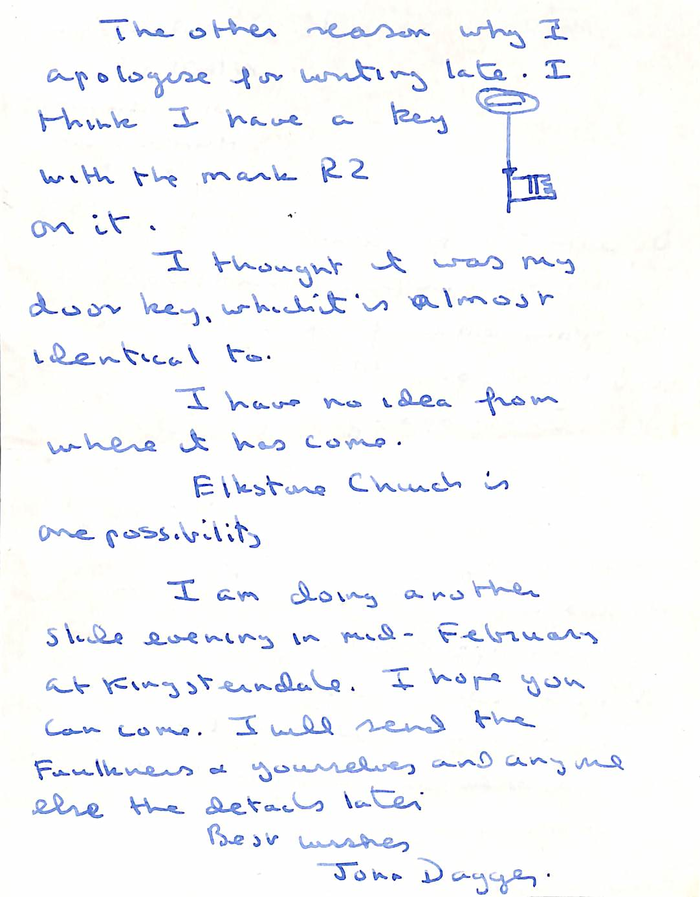 The other reason why I
apologise for writing late. I
think I have a key
with the mark R2
on it.
I thought it was my
door key, which it is almost
identical to.
I have no idea from
where it has come.
Elkstone Church is
one possibility
I am doing another
slide evening in mid-February
at Kingsterndale. I hope you
can come. I will send the
Faulkners & yourselves and anyone
else the details later
Best wishes
John